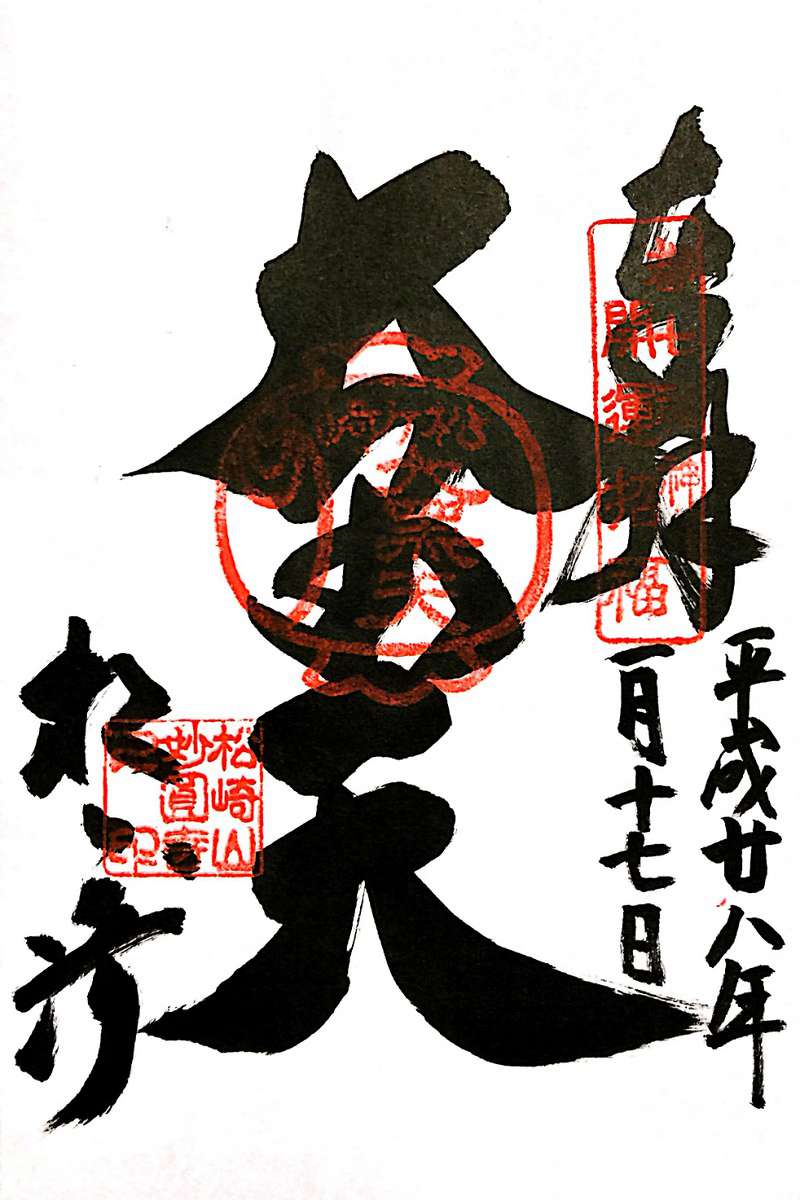 奉拝
開運招福
平成廿八年
一月十七日
大黒天
松ヶ崎
大黒天
松ヶ崎
松崎山
妙圓寺
印